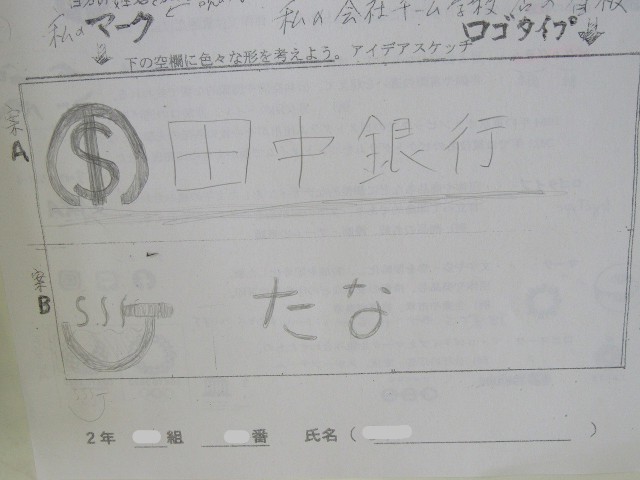 私のマーク
私の会社チーム学校店の看板
ロゴタイプ
下の空欄に色々な形を考えよう。アイデアスケッチ
案A
$ 田中銀行
案B
たな
2年 組 番 氏名( )